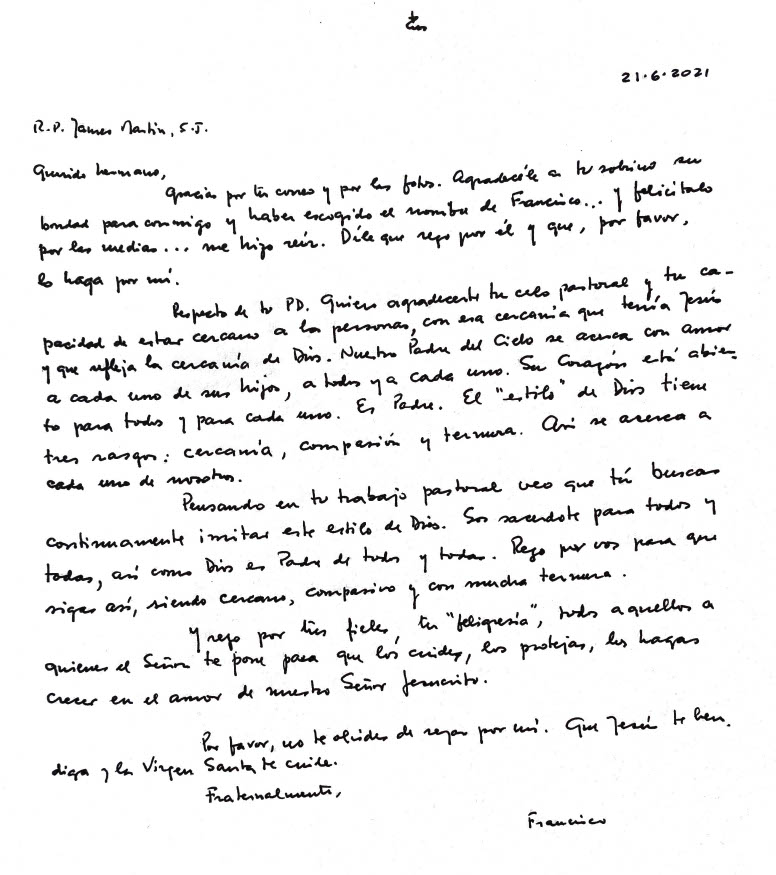 21.6.2021
R.P. James Martin, S.J.
Querido hermano,
Gracias por tu correo y por las fotos. Agradecéle a tu sobrino su
bondad para conmigo y haber escogido el nombre de Francisco... y felicitalo
por las medias... me hizo reir. Díle que rezo por él y que, por favor,
lo haga por mí.
Respecto de tu PD. Quiero agradecerte tu celo pastoral y tu ca-
pacidad de estar cercano a las personas, con esa cercanía que tenía Jesús
y que refleja la cercanía de Dios. Nuestro Padre del Cielo se acerca con amor
a cada uno de sus hijos, a todos y a cada uno. Su Corazón está abier-
to para todos y para cada uno. Es Padre. El "estilo" de Dios tiene
tres rasgos: cercanía, compasión y ternura. Así se acerca a
cada uno de nosotros.
Pensando en tu trabajo pastoral veo que tú buscas
continuamente imitar este estilo de Dios. Sos sacerdote para todos y
todas, así como Dios es Padre de todos y todas. Rezo por vos para que
sigas así, siendo cercano, compasivo y con mucha ternura.
Y rezo por tus fieles, tu "feligresía", todos aquellos a
quienes el Señor te pone para que los cuides, los protejas, los hagas
crecer en el amor de nuestro Señor Jesucristo.
Por favor, no te olvides de rezar por mí. Que Jesús te ben-
diga y la Virgen Santa te cuide.
Fraternalmente,
Francisco